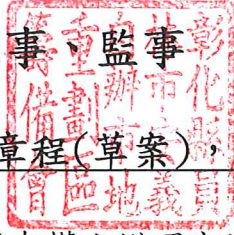 事、監事
章程(草案)，
彰化縣員
林市義
自辦市地
重劃區
籌備會